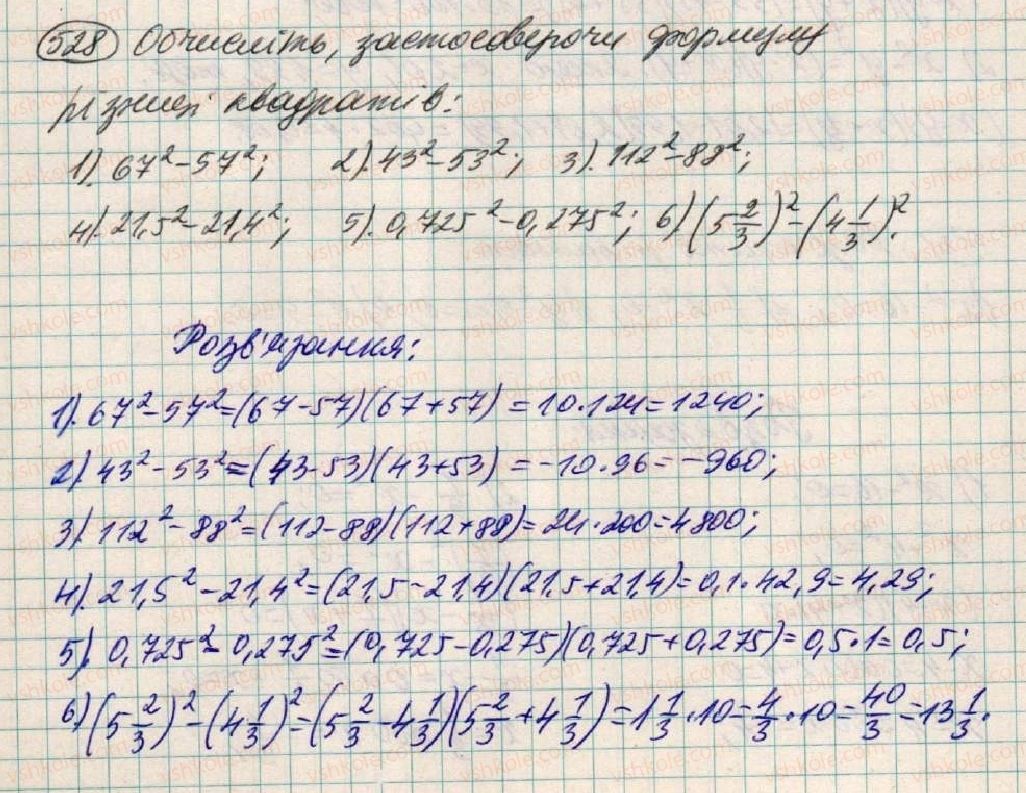 528 Обчисліть, застосовуючи формулу
різниці квадратів:
1). 67² - 57²; 2). 43² - 53²; 3). 112² - 88²;
4). 21,5² - 21,4²; 5). 0,725² - 0,275²; 6) (5 2/3)² - (4 1/3)².
Розв'язання:
1). 67² - 57² = (67 - 57)(67 + 57) = 10 · 124 = 1240;
2). 43² - 53² = (43 - 53)(43 + 53) = -10 · 96 = -960;
3). 112² - 88² = (112 - 88)(112 + 88) = 24 · 200 = 4800;
4). 21,5² - 21,4² = (21,5 - 21,4)(21,5 + 21,4) = 0,1 · 42,9 = 4,29;
5). 0,725² - 0,275² = (0,725 - 0,275)(0,725 + 0,275) = 0,5 · 1 = 0,5;
6) (5 2/3)² - (4 1/3)² = (5 2/3 - 4 1/3)(5 2/3 + 4 1/3) = 1 1/3 · 10 = 4/3 · 10 = 40/3 = 13 1/3.